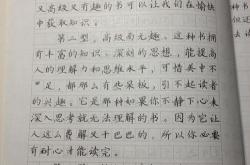 又高级又有趣的书可以让我们在愉快
中获取知识。
第二型，高级而无趣。这种书拥
有丰富的知识、深刻的思想，能提高
人的理解力和思维水平，可惜美中不
足，都那么有些呆板，引不起读者
的兴趣。它是那种如果你不静下心来
深入思考就无法理解的书。因为它让
人这么费解又干巴巴的，所以你必要
有耐心才能读完。